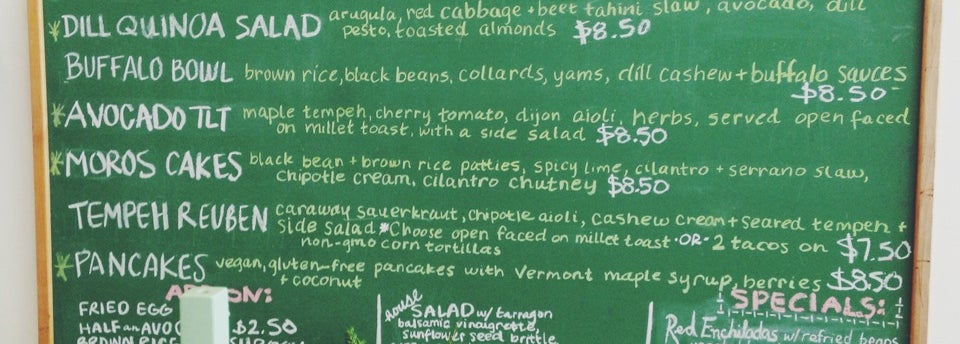 arugula, red cabbage + beet tahini slaw, avocado, dill
*DILL QUINOA SALAD pesto, toasted almonds $8.50
BUFFALO BOWL brown rice, black beans, collards, yams, dill cashew + buffalo sauces
$8.50
*AVOCADO TLT maple tempeh, cherry tomato, dijon aioli, herbs, served open faced
on millet toast, with a side salad $8.50
*MOROS CAKES black bean + brown rice patties, spicy lime, cilantro + serrano slaw,
chipotle cream, cilantro chutney $8.50
TEMPEH REUBEN caraway sauerkraut, chipotle aioli, cashew cream + seared tempeh +
side salad *Choose open faced on millet toast -OR- 2 tacos on $7.50
non-gmo corn tortillas
*PANCAKES vegan, gluten-free pancakes with Vermont maple syrup, berries $8.50
+ coconut
FRIED EGG
HALF an AVOC $2.50
BROWN RICE
house SALAD w/ tarragon
balsamic vinaigrette,
sunflower seed brittle
SPECIALS:
Red Enchiladas w/ refried beans